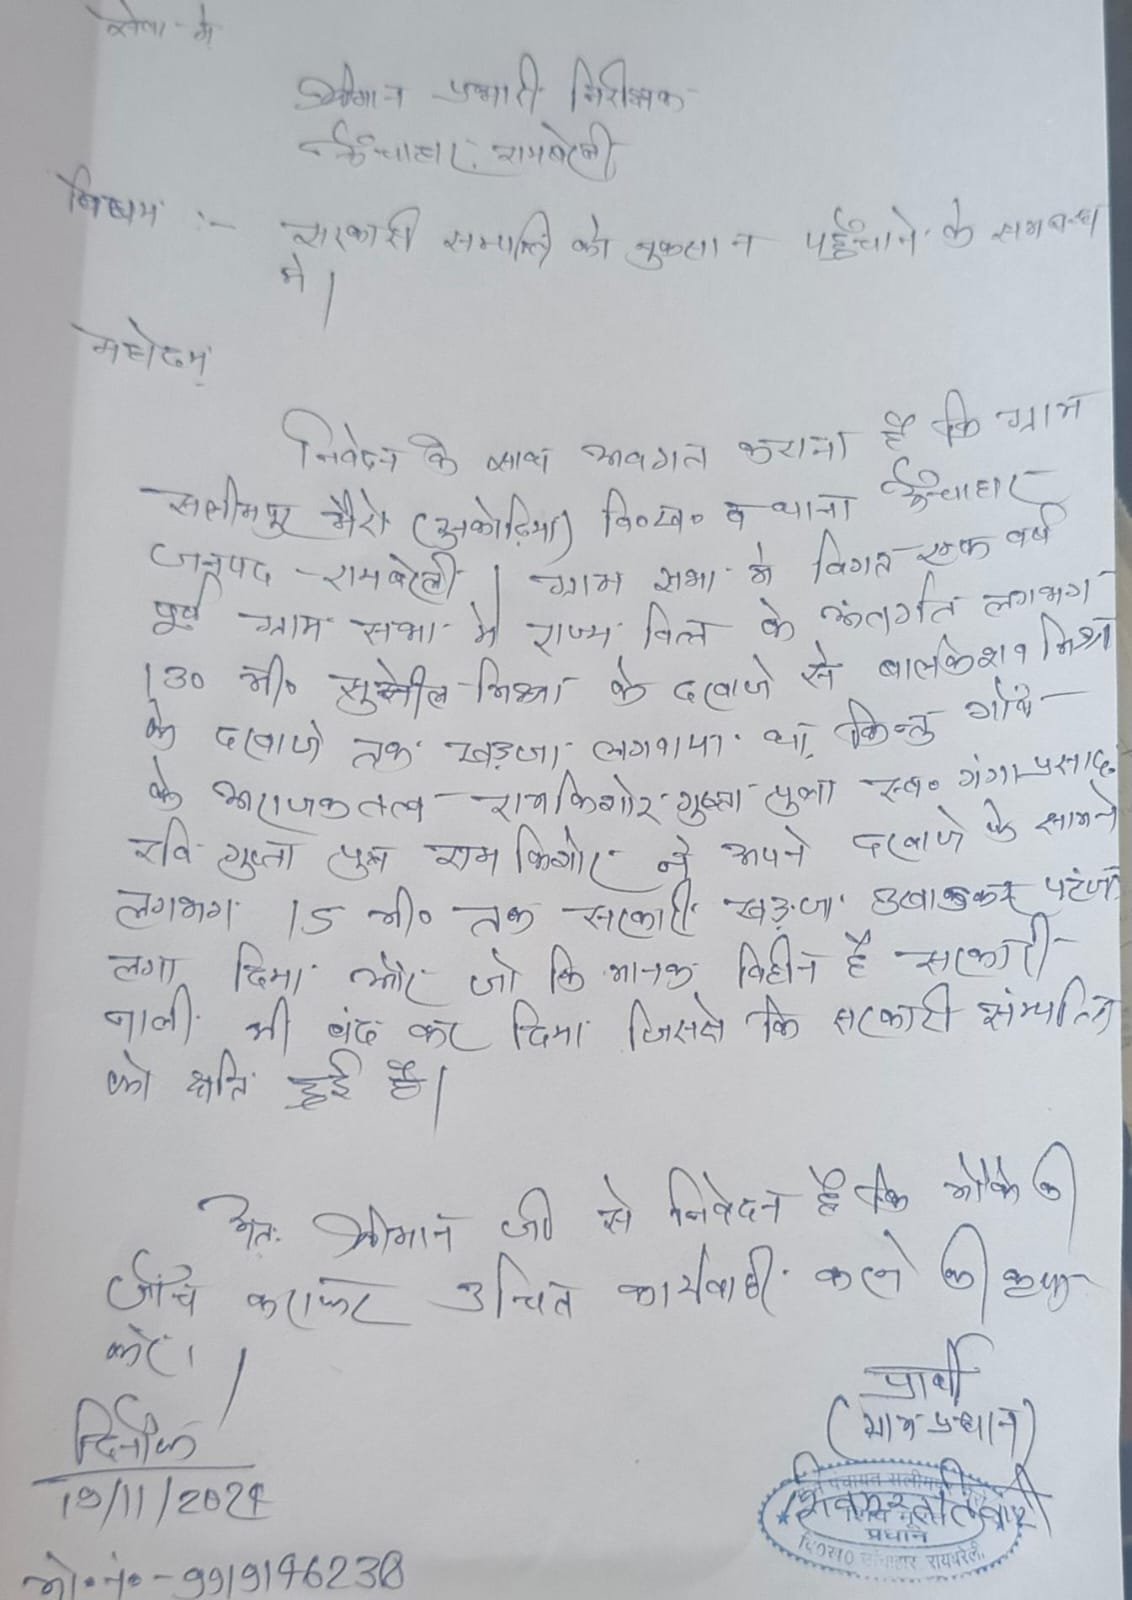 सेवा में
श्रीमान प्रभारी निरीक्षक
ऊँचाहार, रायबरेली
विषय :- सरकारी सम्पत्ति को नुकसान पहुँचाने के सम्बन्ध
में।
महोदय,
निवेदन के साथ अवगत कराना है कि ग्राम
सलीमपुर भैरो वि०ख० व थाना ऊँचाहार
जनपद - रायबरेली। ग्राम सभा में विगत एक वर्ष
पूर्व ग्राम सभा में राज्य वित्त के अंतर्गत लगभग
130 मी० सुशील मिश्रा के दरवाजे से बालकेशन मिश्रा
के दरवाजे तक खड़ंजा लगवाया था, किन्तु गाँव
के अराजकतत्व रामकिशोर गुप्ता पुत्र स्व० गंगाप्रसाद,
रवि गुप्ता पुत्र राम किशोर ने अपने दरवाजे के सामने
लगभग 15 मी० तक सरकारी खड़ंजा उखाड़कर
लगा दिया और जो कि मानक विहीन है सरकारी
नाली भी बंद कर दिया जिससे कि सरकारी संम्पत्ति
को क्षति हुई है।
अतः श्रीमान जी से निवेदन है कि मौके की
जाँच कराकर उचित कार्यवाही करने की कृपा
करें।
प्रार्थी
(ग्राम प्रधान)
दिनाँक
19/11/2024
प्रधान
वि०ख० ऊँचाहार रायबरेली.
मो०नं०-9919146238